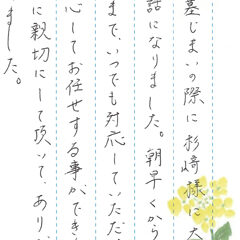 墓じまいの際に杉崎様に大
話になりました。朝早くから
まで、いつでも対応していただ
心してお任せする事ができ
に親切にして頂いて、ありが
ました。